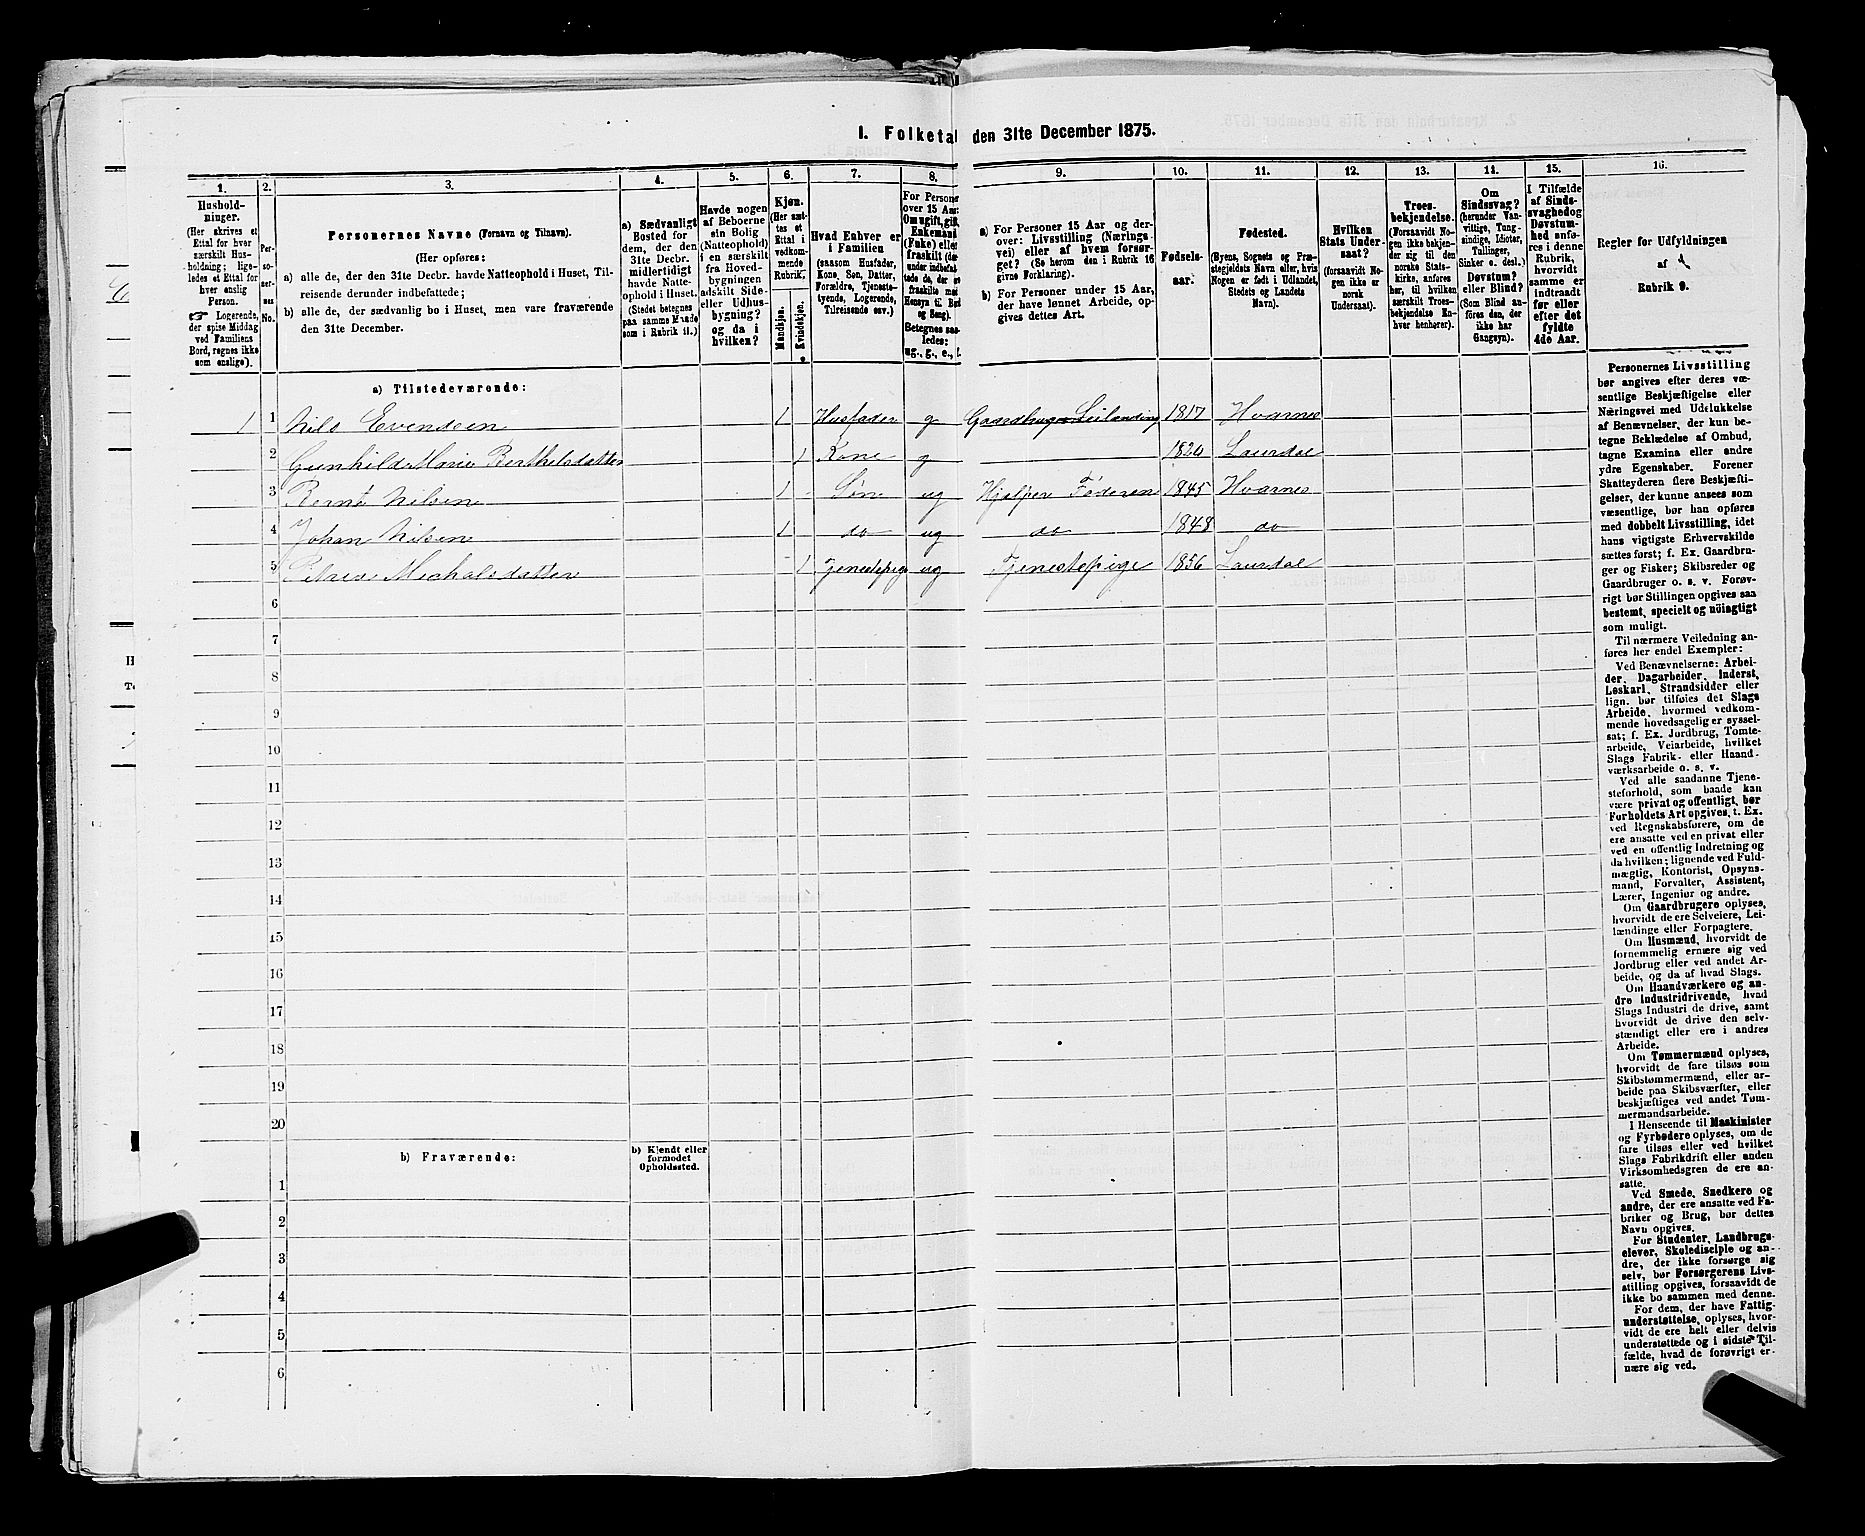 1. Folketal den 31te December 1875.
1. 2. 3. 4. 5. 6. 7. 8. 9. 10. 11. 12. 13. 14. 15. 16.
Hushold-
ninger.
(Her skrives et
Ettal for hver
særskilt Hus-
holdning; lige-
ledes et Ettal for
hver enslig
Person.
☞ Logerende,
der spise Middag
ved Familiens
Bord, regnes ikke
som enslige).
Per-
so-
ner-
nes
No.
Personernes Navne (Fornavn og Tilnavn).
(Her opføres:
a) alle de, der den 31te Decbr. havde Natteophold i Huset, Til-
reisende derunder indbefattede;
b) alle de, der sædvanlig bo i Huset, men vare fraværende
den 31te December.
a) Sædvanligt
Bosted for
dem, der den
31te Decbr.
midlertidigt
havde Natte-
ophold i Huset.
(Stedet betegnes
paa samme Maade
som i Rubrik 11.)
Havde nogen
af Beboerne
sin Bolig
(Natteophold)
i en særskilt
fra Hoved-
bygningen
adskilt Side-
eller Udhus-
bygning?
og da i
hvilken?
Kjøn.
(Her sæt-
tes et
Ettal i
vedkom-
mende
Rubrik.
Mandkjøn.
Kvindekjøn.
Hvad Enhver er
i Familien
(saasom Husfader,
Kone, Søn, Datter,
Forældre, Tjeneste-
tyende, Logerende,
Tilreisende osv.)
For Person
over 15 Aar:
Om ugift, gift,
Enkemand
(Enke) eller
fraskilt
Betegnes saa-
ledes:
ug., g., e., f.
a) For Personer 15 Aar og der-
over: Livsstilling (Nærings-
vei) eller af hvem forsør-
get? (Se herom den i Rubrik 16
givne Forklaring).
b) For Personer under 15 Aar,
der have lønnet Arbeide, op-
gives dettes Art.
Fødsels-
aar.
Fødested.
(Byens, Sognets og Præ-
stegjeldets Navn eller, hvis
Nogen er født i Udlandet,
Stedets og Landets
Navn).
Hvilken
Stats Under-
saat?
(forsaavidt No-
gen ikke er
norsk
Undersaat).
Troes-
bekjendelse.
(Forsaavidt No-
gen ikke bekjen-
der sig til den
norske Stats-
kirke, anføres
her, til hvilken
særskilt Troes-
bekjendelse En-
hver henhører).
Om
Sindssvag?
(herunder Van-
vittige, Tung-
sindige, Idioter,
Tullinger,
Sinker o. desl.)
Døvstum?
eller Blind?
(Som Blind an-
føres den, der
ikke har
Gangsyn).
I Tilfælde
af Sinds-
svaghed og
Døvstum-
hed anfø-
res i denne
Rubrik,
hvorvidt
samme er
indtraadt
før eller
efter det
fyldte
4de Aar.
Regler for Udfyldningen
af
Rubrik 9.
a) Tilstedeværende:
1 1 Nils Evendsen 1 Husfader g Gaardbruger Leilending 1817 Hvarnes
2 Gunhild Marie Berthelsdatter 1 Kone g 1820 Laurdal
3 Bernt Nilsen 1 Søn ug Hjelper Faderen 1845 Hvarnes
4 Johan Nilsen 1 do ug do 1848 do
5 Petrea Michalsdatter 1 Tjenestepige ug Tjenestepige 1856 Laurdal
6
7
8
9
10
11
12
13
14
15
16
17
18
19
20
b) Fraværende:
b) Kjendt eller
formodet
Opholdssted.
1
2
3
4
5
6
Personernes Livsstilling
bør angives efter deres væ-
sentlige Beskjæftigelse eller
Næringsvei med Udelukkelse
af Benævnelser, der kun be-
tegne Beklædelse af Ombud,
tagne Examina eller andre
ydre Egenskaber. Forener
Skatteyderen flere Beskjæfti-
gelser, der kunne ansees som
væsentlige, bør han opføres
med dobbelt Livsstilling, idet
hans vigtigste Erhvervskilde
sættes først; f. Ex. Gaardbru-
ger og Fisker; Skibsreder og
Gaardbruger o. s. v. Forøv-
rigt bør Stillingen opgives saa
bestemt, specielt og nöiagtigt
som muligt.
Til nærmere Veiledning an-
føres her endel Exempler:
Ved Benævnelserne: Arbei-
der, Dagarbeider, Inderst,
Løskarl, Strandsidder eller
lign. bør tilføies det Slags
Arbeide, hvormed vedkom-
mende hovedsagelig er syssel-
sat; f. Ex. Jordbrug, Tomte-
arbeide, Veiarbeide, hvilket
Slags Fabrik- eller Haand-
værksarbeide o. s. v.
Ved alle saadanne Tjene-
steforhold, som baade kan
være privat og offentligt, bør
Forholdets Art opgives, t. Ex.
ved Regnskabsførere, om de
ere ansatte ved en privat eller
ved en offentlig Indretning og
da hvilken; lignende ved Fuld-
mægtig, Kontorist, Opsyns-
mand, Forvalter, Assistent,
Lærer, Ingeniør og andre.
Om Gaardbrugere oplyses,
hvorvidt de ere Selveiere, Lei-
lændinge eller Forpagtere.
Om Husmænd, hvorvidt de
fornemmelig ernære sig ved
Jordbrug eller ved andet Ar-
beide, og da af hvad Slags.
Om Haandværkere og an-
dre Industridrivende, hvad
Slags Industri de drive, samt
hvorvidt de drive den selv-
stændigt eller ere i andres
Arbeide.
Om Tømmermænd oplyses,
hvorvidt de fare tilsøs som
Skibstømmermænd, eller ar-
beide paa Skibsværfter, eller
beskjæftiges ved andet Tøm-
mermandsarbeide.
I Henseende til Maskinister
og Fyrbødere oplyses, om de
fare tilsøs eller ved hvilket
Slags Fabrikdrift eller anden
Virksomhedsgren de ere an-
satte.
Ved Smede, Snedkere og
andre, der ere ansatte ved Fa-
briker og Brug, bør dettes
Navn opgives.
For Studenter, Landbrugs-
elever, Skoledisciple og an-
dre, der ikke forsørge sig
selv, bør Forsørgerens Livs-
stilling opgives, forsaavidt de
ikke bo sammen med denne.
For dem, der have Fattig-
understøttelse, oplyses, hvor-
vidt de ere helt eller delvis
understøttede og i sidste Til-
fælde, hvad de forøvrigt er-
nære sig ved.